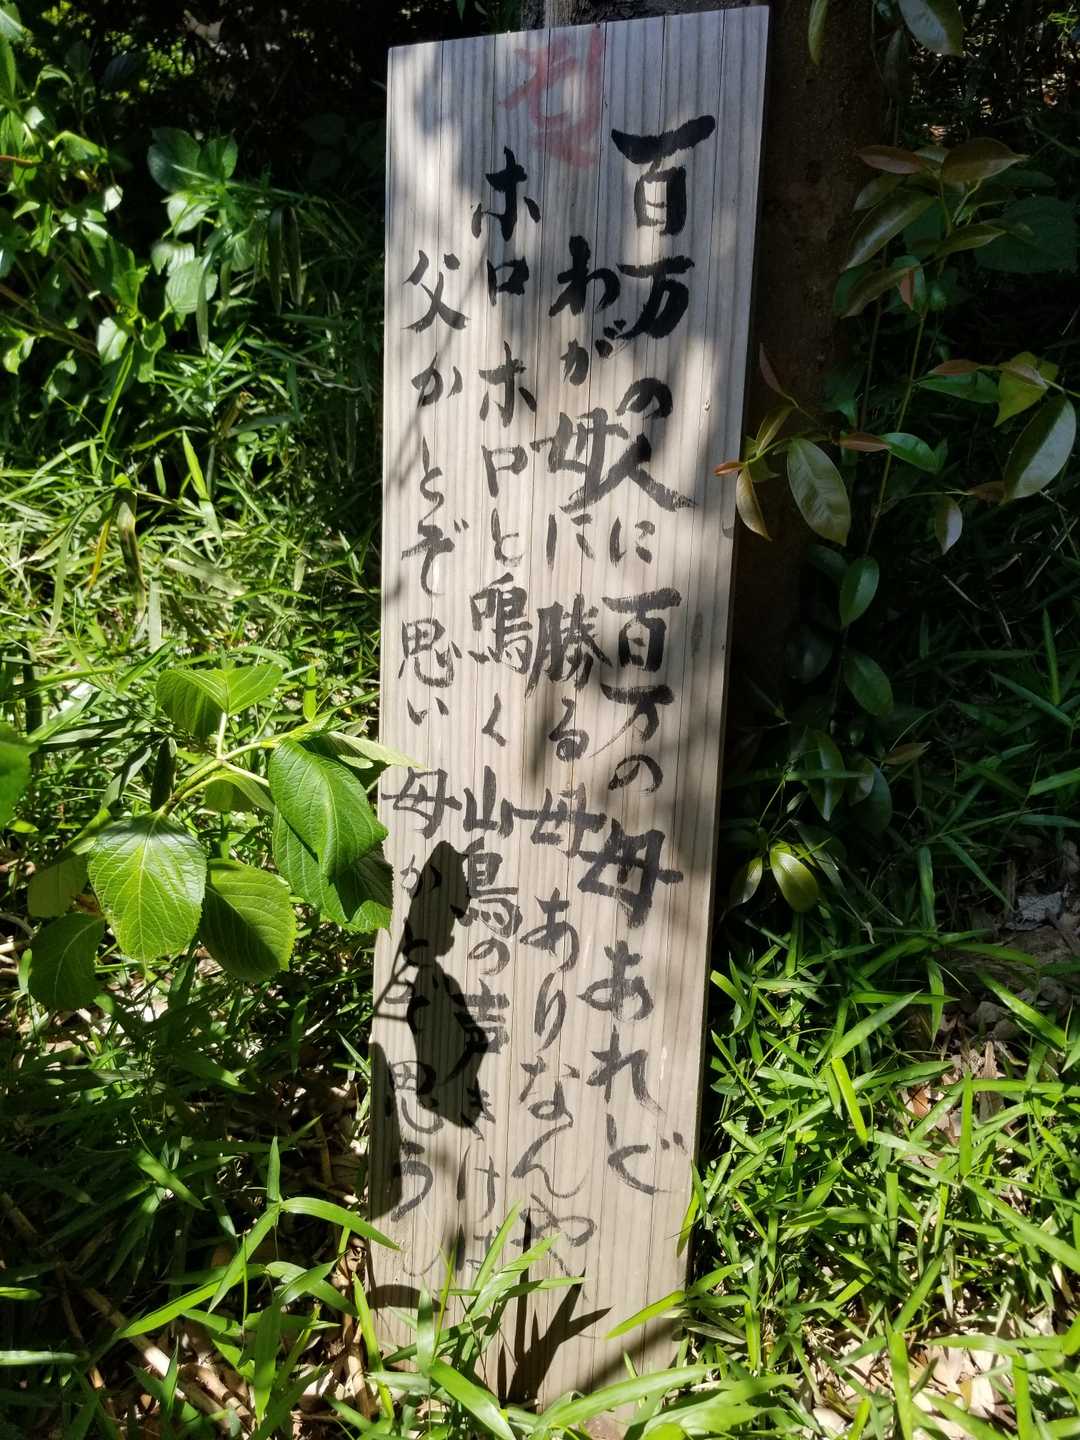 百万の人に百万の母あれど
わが母に勝る母ありなんや
ホロホロと鳴く山鳥の声きけば
父かとぞ思い母かとぞ思う